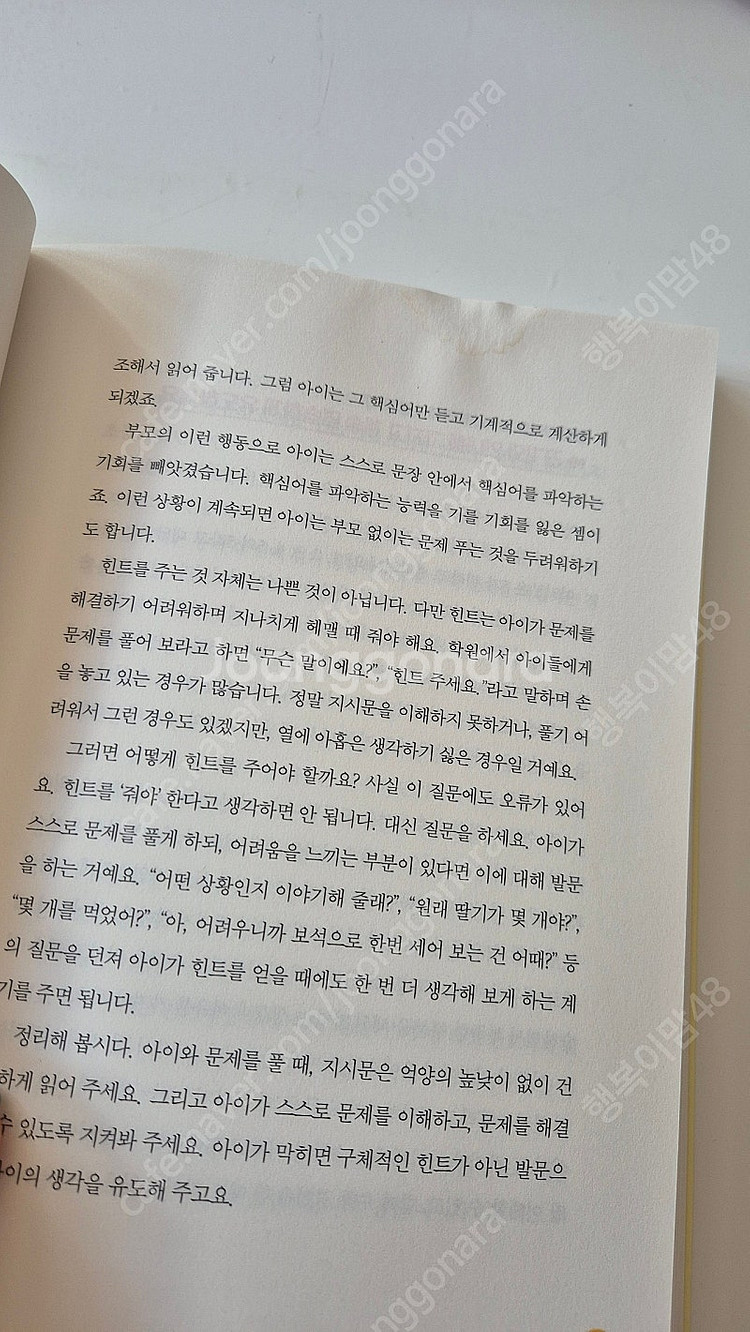 조해서 읽어 줍니다. 그럼 아이는 그 핵심어만 듣고 기계적으로 계산하게
되겠죠.
부모의 이런 행동으로 아이는 스스로 문장 안에서 핵심어를 파악하는
기회를 빼앗겼습니다. 핵심어를 파악하는 능력을 기를 기회를 잃은 셈이
죠. 이런 상황이 계속되면 아이는 부모 없이는 문제 푸는 것을 두려워하기
도 합니다.
힌트를 주는 것 자체는 나쁜 것이 아닙니다. 다만 힌트는 아이가 문제를
해결하기 어려워하며 지나치게 헤맬 때 줘야 해요. 학원에서 아이들에게
문제를 풀어 보라고 하면 “무슨 말이에요?”, “힌트 주세요.”라고 말하며 손
을 놓고 있는 경우가 많습니다. 정말 지시문을 이해하지 못하거나, 풀기 어
려워서 그런 경우도 있겠지만, 열에 아홉은 생각하기 싫은 경우일 거예요.
그러면 어떻게 힌트를 주어야 할까요? 사실 이 질문에도 오류가 있어
요. 힌트를 ‘줘야’ 한다고 생각하면 안 됩니다. 대신 질문을 하세요. 아이가
스스로 문제를 풀게 하되, 어려움을 느끼는 부분이 있다면 이에 대해 발문
을 하는 거예요. “어떤 상황인지 이야기해 줄래?”, “원래 딸기가 몇 개야?”,
“몇 개를 먹었어?”, “아, 어려우니까 보석으로 한번 세어 보는 건 어때?” 등
의 질문을 던져 아이가 힌트를 얻을 때에도 한 번 더 생각해 보게 하는 계
기를 주면 됩니다.
정리해 봅시다. 아이와 문제를 풀 때, 지시문은 억양의 높낮이 없이 건
하게 읽어 주세요. 그리고 아이가 스스로 문제를 이해하고, 문제를 해결
수 있도록 지켜봐 주세요. 아이가 막히면 구체적인 힌트가 아닌 발문으
이의 생각을 유도해 주고요.
cafe.naver.com/joonggonara
행복이맘48
joonggonara
행복이맘48
cafe.naver.com/joonggonara
행복이맘48
joonggonara